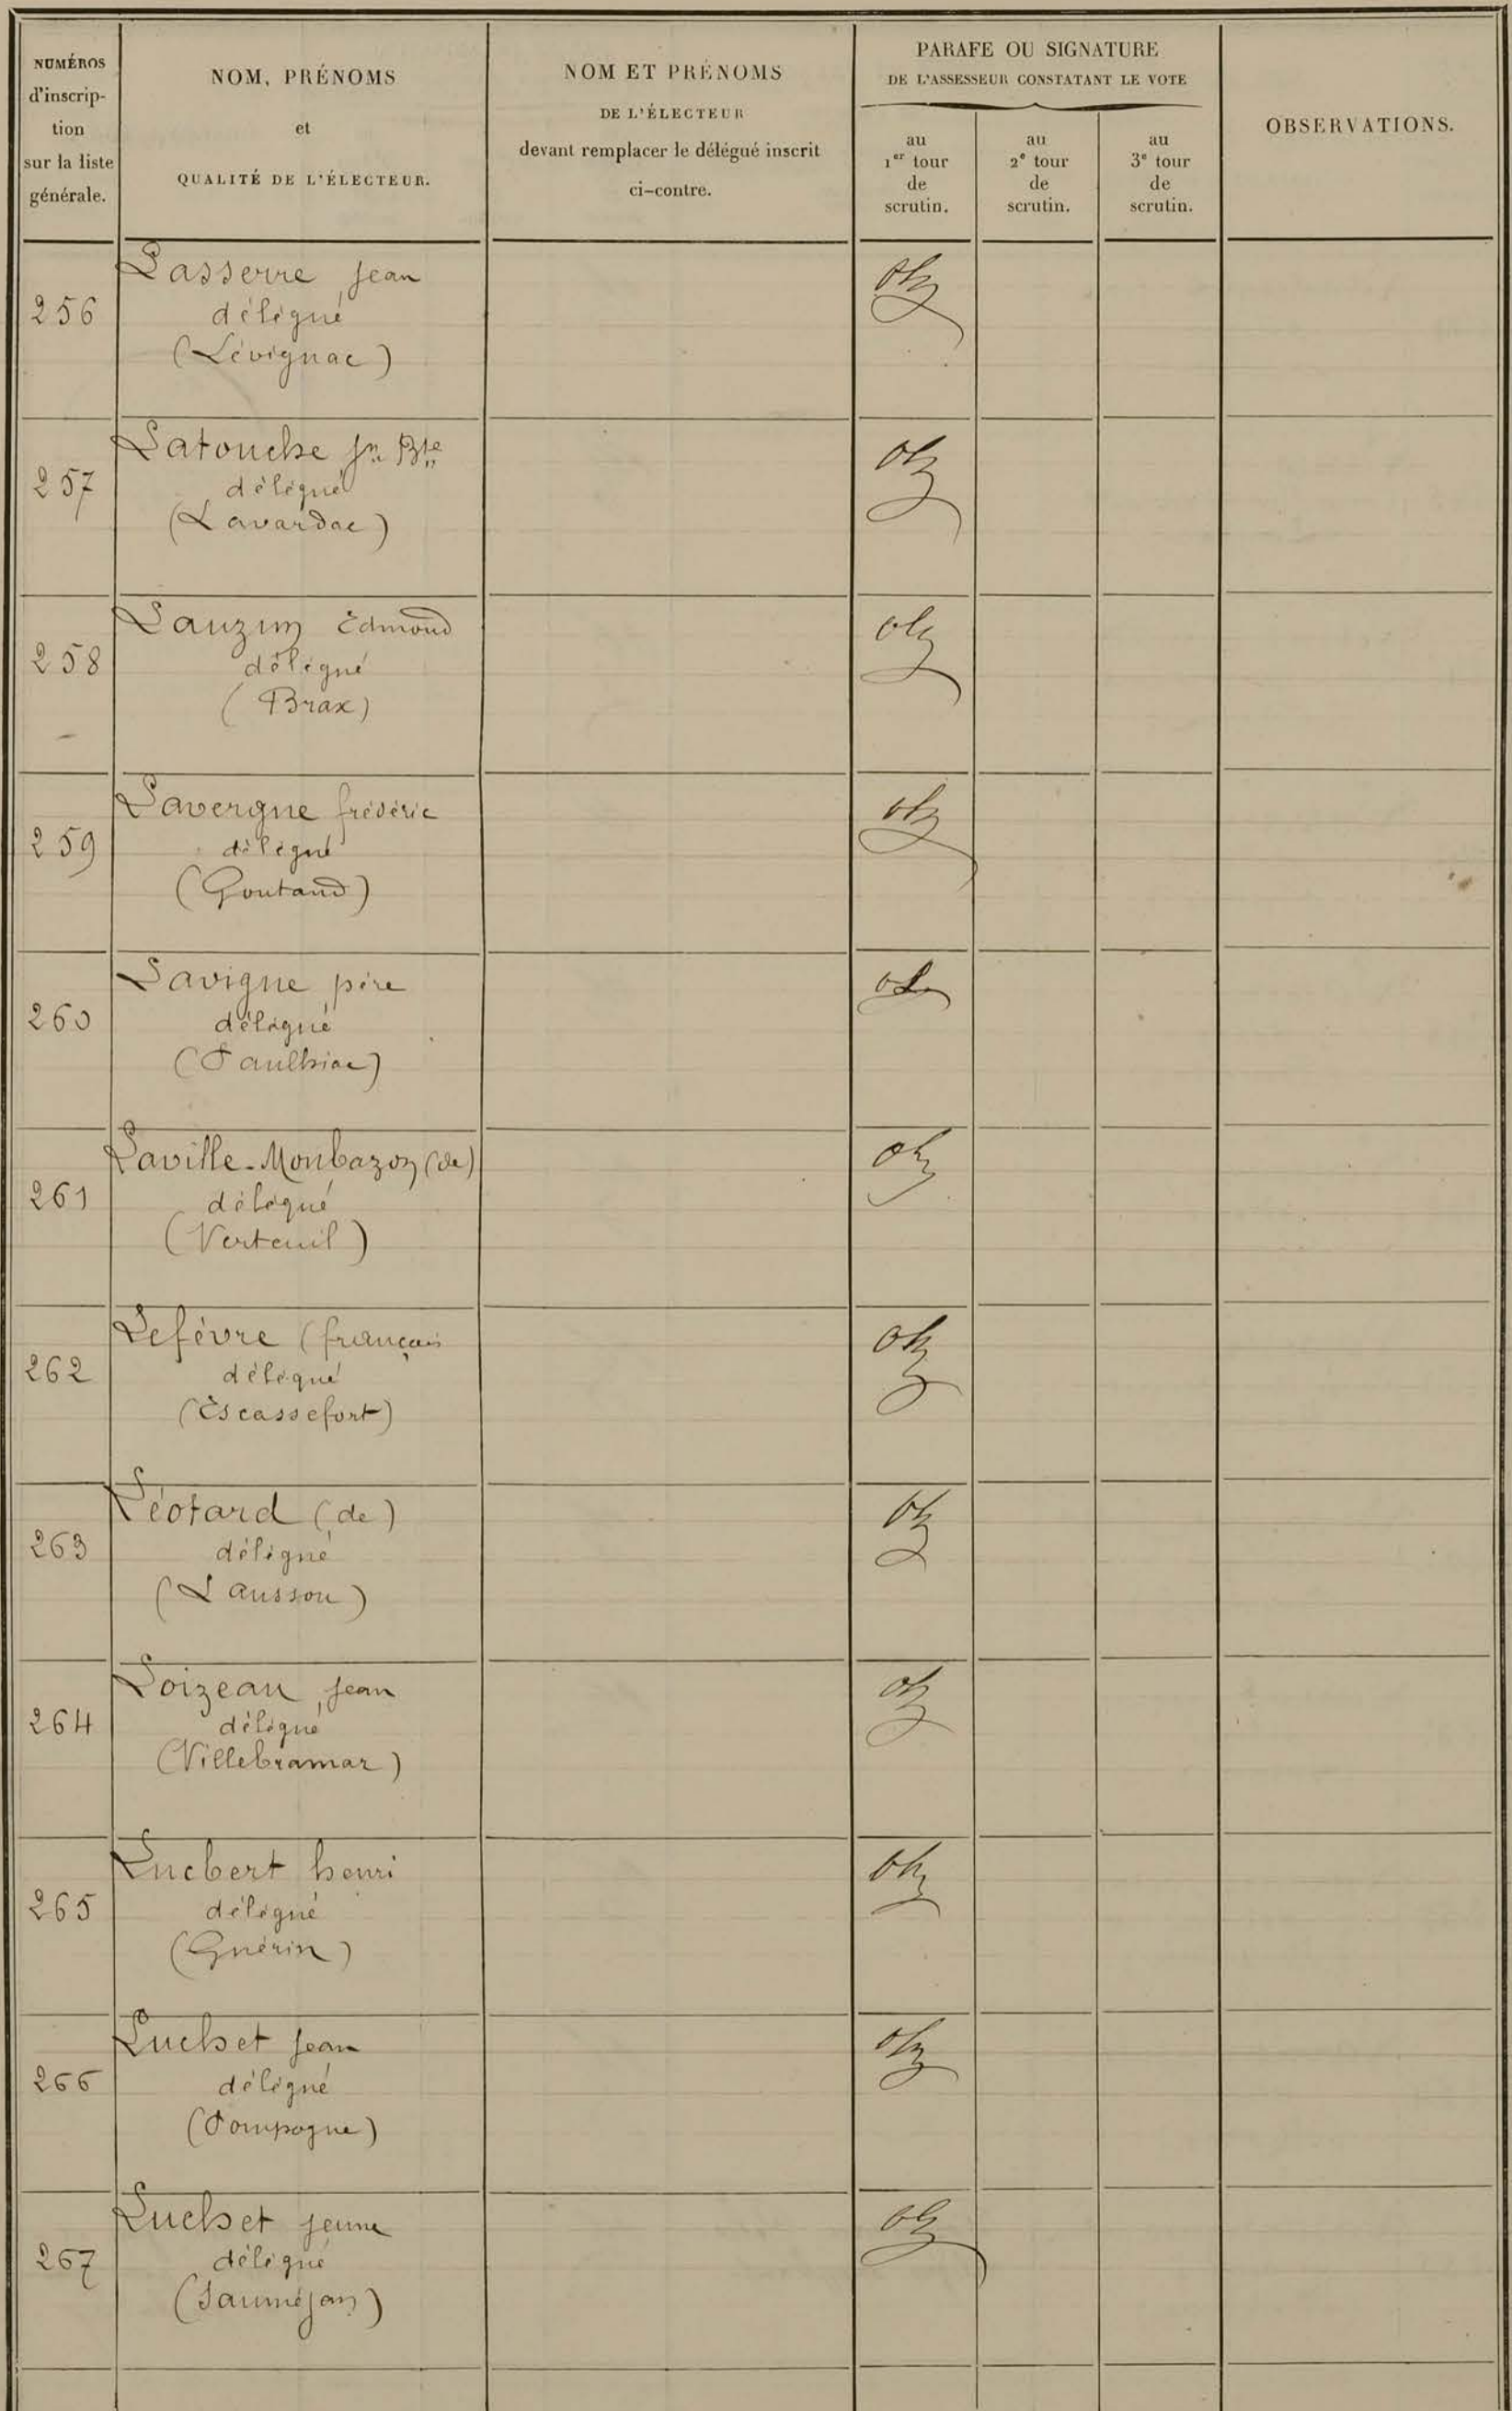 NUMÉROS
d'inscrip-
tion
sur la liste
générale.
NOM, PRÉNOMS
et
QUALITÉ DE L'ÉLECTEUR.
NOM ET PRÉNOMS
DE L'ÉLECTEUR
devant remplacer le délégué inscrit
ci-contre.
PARAFE OU SIGNATURE
DE L'ASSESSEUR CONSTATANT LE VOTE
au
1er tour
de
scrutin.
au
2e tour
de
scrutin.
au
3e tour
de
scrutin.
OBSERVATIONS.
Lasserre Jean
256 délégué
(Lévignac)
Latouche Jn Bte
257 délégué
(Lavardac)
Lauzun Edmond
258 délégué
(Brax)
Lavergne frédéric
259 délégué
(Gontaud)
Lavigne père
260 délégué
(Paulhiac)
Laville-Monbazon (de)
261 délégué
(Verteuil)
Lefèvre (français
262 délégué
(Escassefort)
Léotard (de)
263 délégué
(Lausson)
Loizeau Jean
264 délégué
(Villebramar)
Lucbert henri
265 délégué
(Guérin)
Luchet Jean
266 délégué
(Pompogne)
Luchet jeune
267 délégué
(Sauméjan)